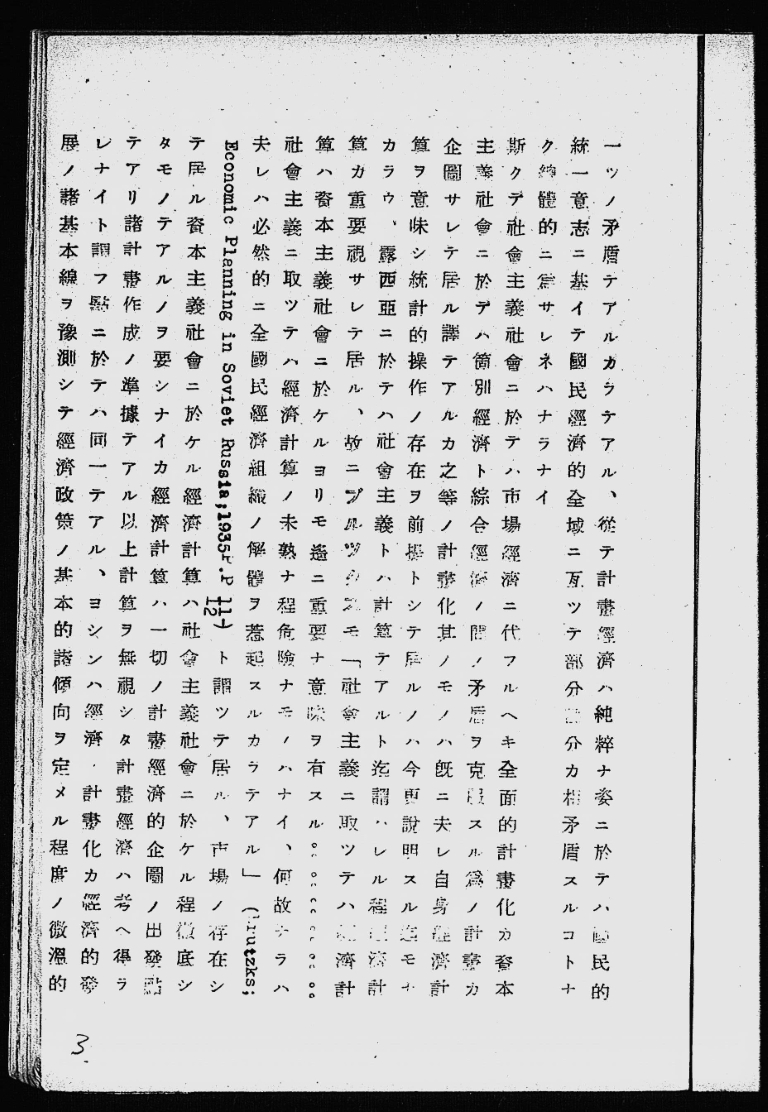 一ツノ矛盾テアルカラテアル、從テ計畫經濟ハ純粹ナ姿ニ於テハ國民的
統一意志ニ基イテ國民經濟的全域ニ亙ツテ部分部分カ相矛盾スルコトナ
ク總體的ニ爲サレネハナラナイ
斯クテ社會主義社會ニ於テハ市場經濟ニ代フルヘキ全面的計畫化カ資本
主義社會ニ於テハ箇別經濟ト綜合經濟ノ間ノ矛盾ヲ克服スル爲ノ計畫カ
企圖サレテ居ル譯テアルカ之等ノ計畫化其ノモノハ既ニ夫レ自身經濟計
算ヲ意味シ統計的操作ノ存在ヲ前提トシテ居ルノハ今更說明スル迄モナ
カラウ、露西亞ニ於テハ社會主義トハ計算テアルト迄謂ハレル程經濟計
算カ重要視サレテ居ル、故ニブルツクスモ「社會主義ニ取ツテハ經濟計
算ハ資本主義社會ニ於ケルヨリモ遙ニ重要ナ意味ヲ有スル。。。。。。
社會主義ニ取ツテハ經濟計算ノ未熟ナ程危險ナモノハナイ、何故ナラハ
夫レハ必然的ニ全國民經濟組織ノ解體ヲ惹起スルカラテアル」(Brutzks;
Economic Planning in Soviet Russia;1935P.P 11-12)ト謂ツテ居ル、市場ノ存在シ
テ居ル資本主義社會ニ於ケル經濟計算ハ社會主義社會ニ於ケル程徹底シ
タモノテアルノヲ要シナイカ經濟計算ハ一切ノ計畫經濟的企圖ノ出發點
テアリ諸計畫作成ノ準據テアル以上計算ヲ無視シタ計畫經濟ハ考ヘ得ラ
レナイト謂フ點ニ於テハ同一テアル、ヨシンハ經濟ノ計畫化カ經濟的發
展ノ諸基本線ヲ豫測シテ經濟政策ノ基本的諸傾向ヲ定メル程度ノ微溫的
3